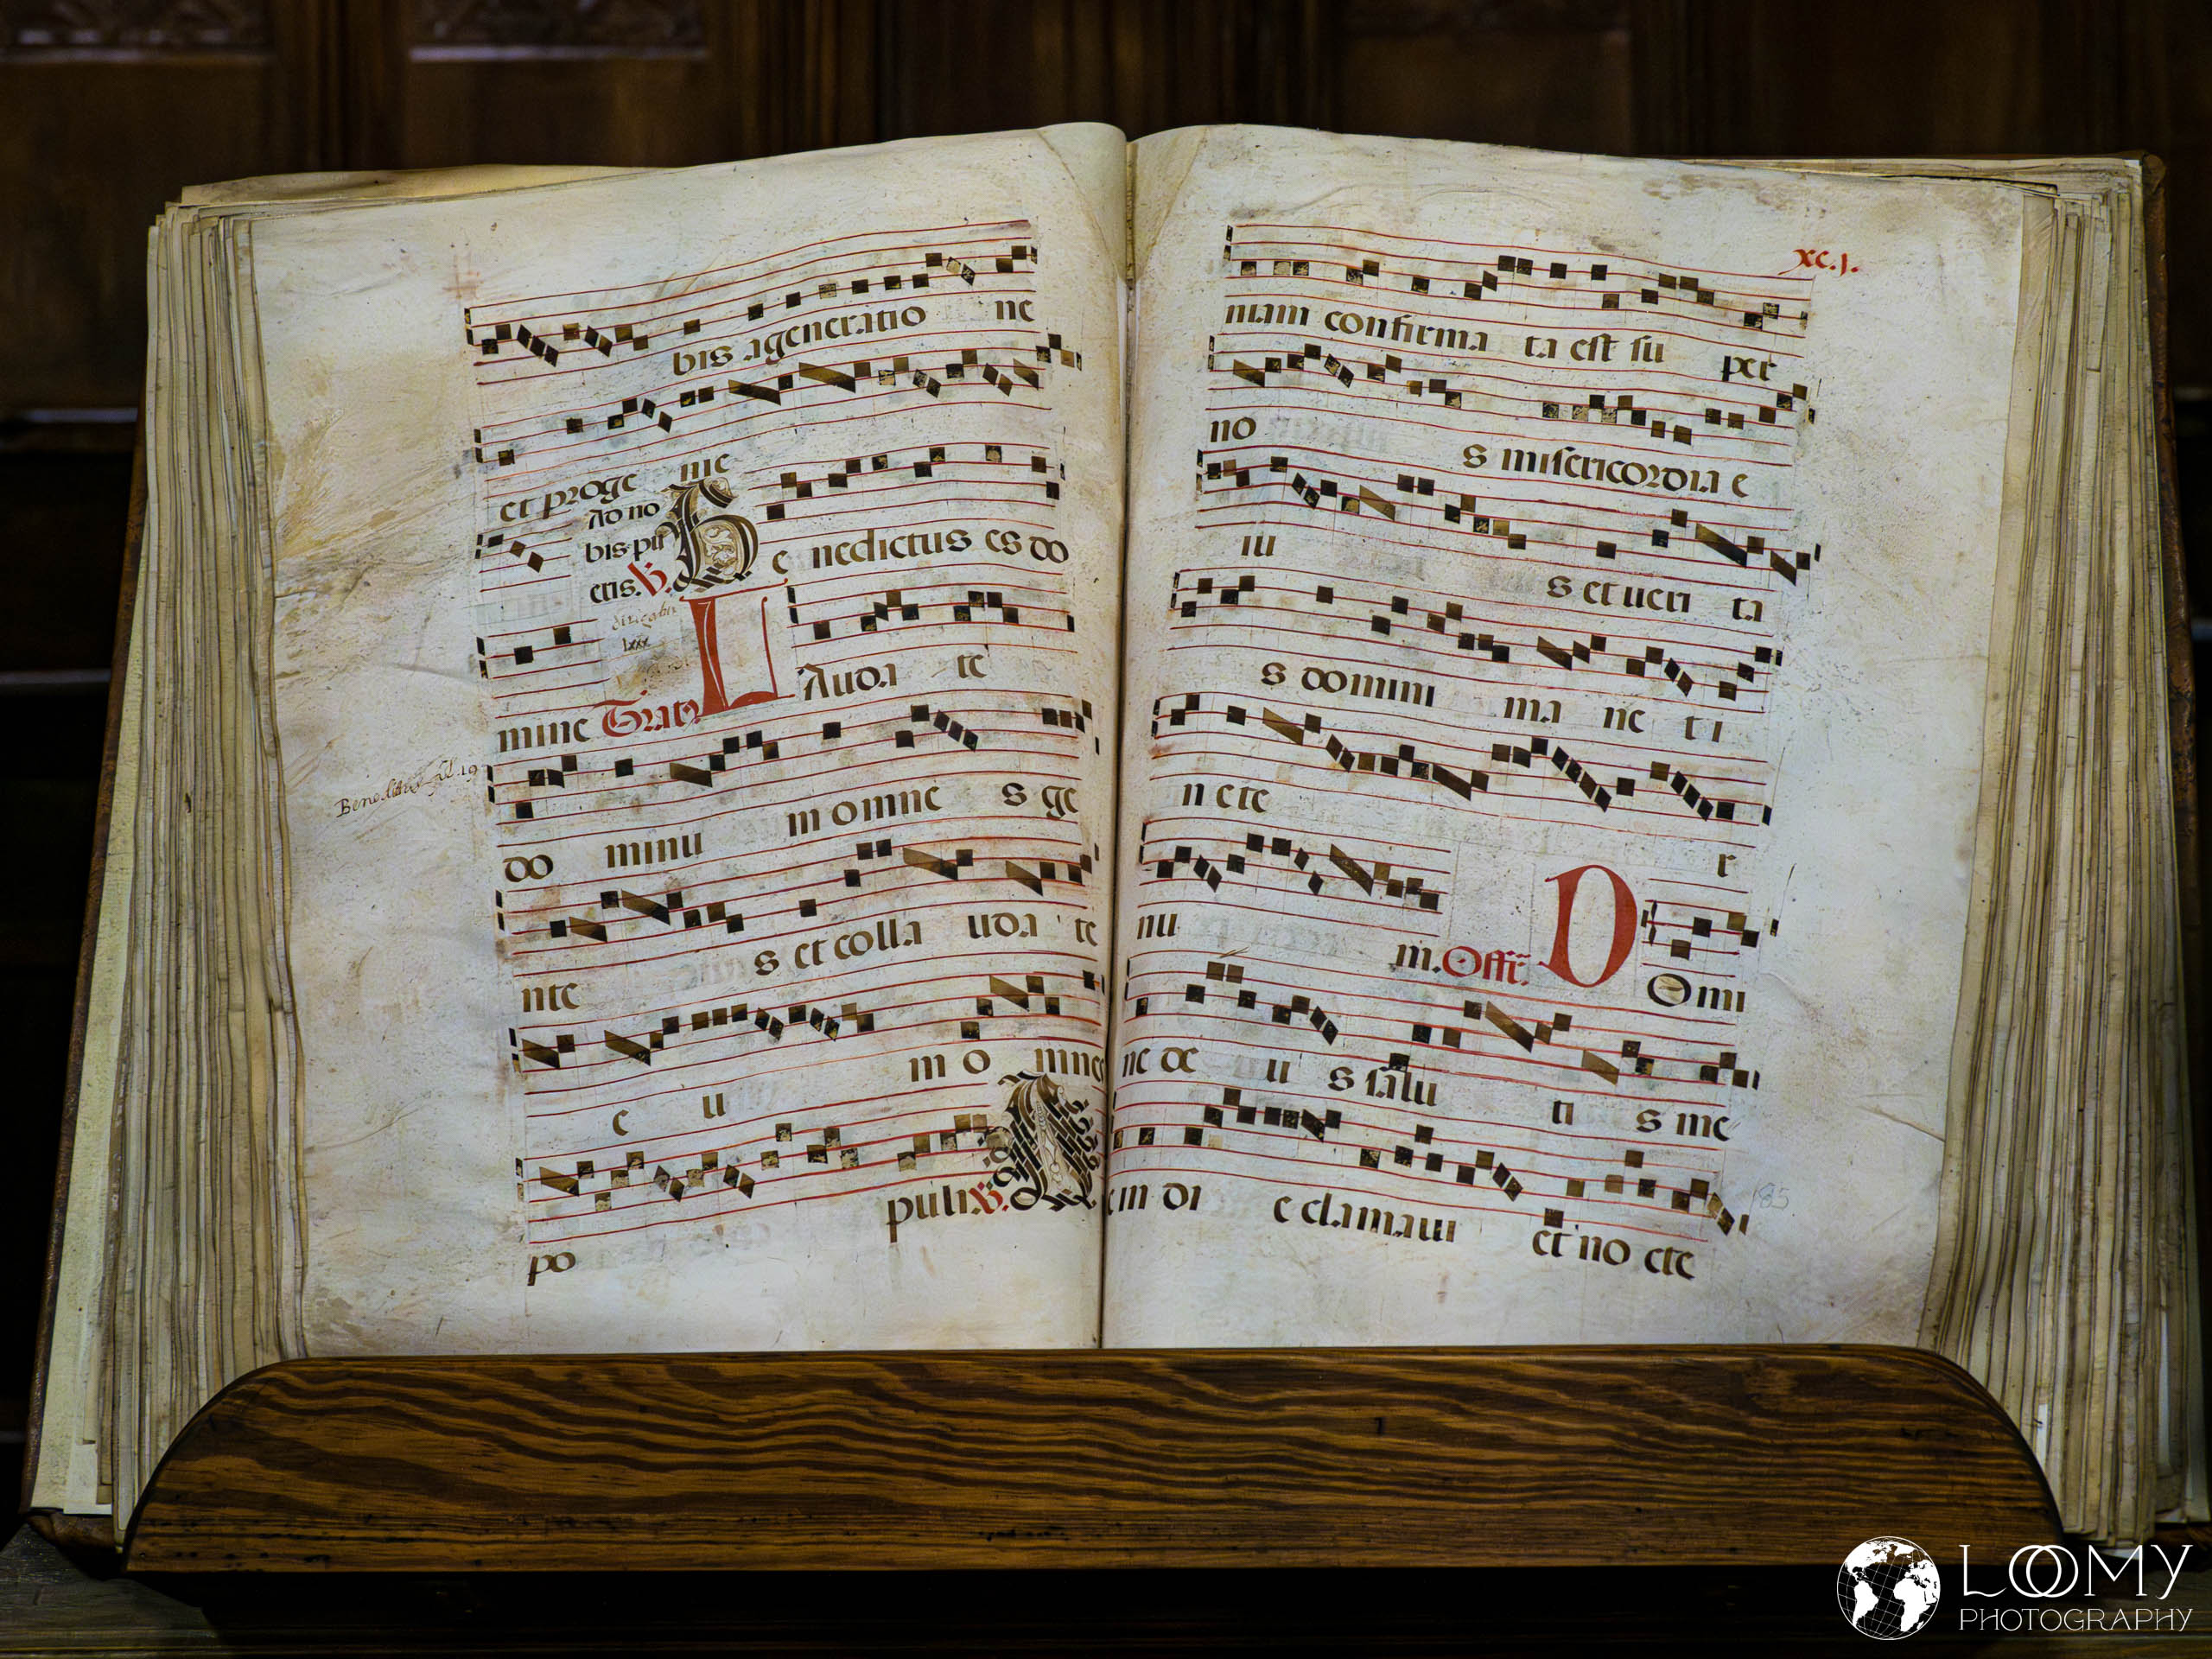 bis a generatio ne
et proge nie
Ad no
bis pu
eris. V. Be nedictus es do
dirigatur
lxxx
mine Tract9 L Auda te
Benedictus fol. 19
do minu m omne s ge
nte s et colla uda te
e u m o mnes
po puli V. Q
xc.j.
niam confirma ta est su per
no s misericordia e
iu s et ueri ta
s domini ma ne t i
n ete r
nu m. Offr. D Omi
ne de u s salu ti s me
e in di e clamaui et no cte
185
LOOMY
PHOTOGRAPHY